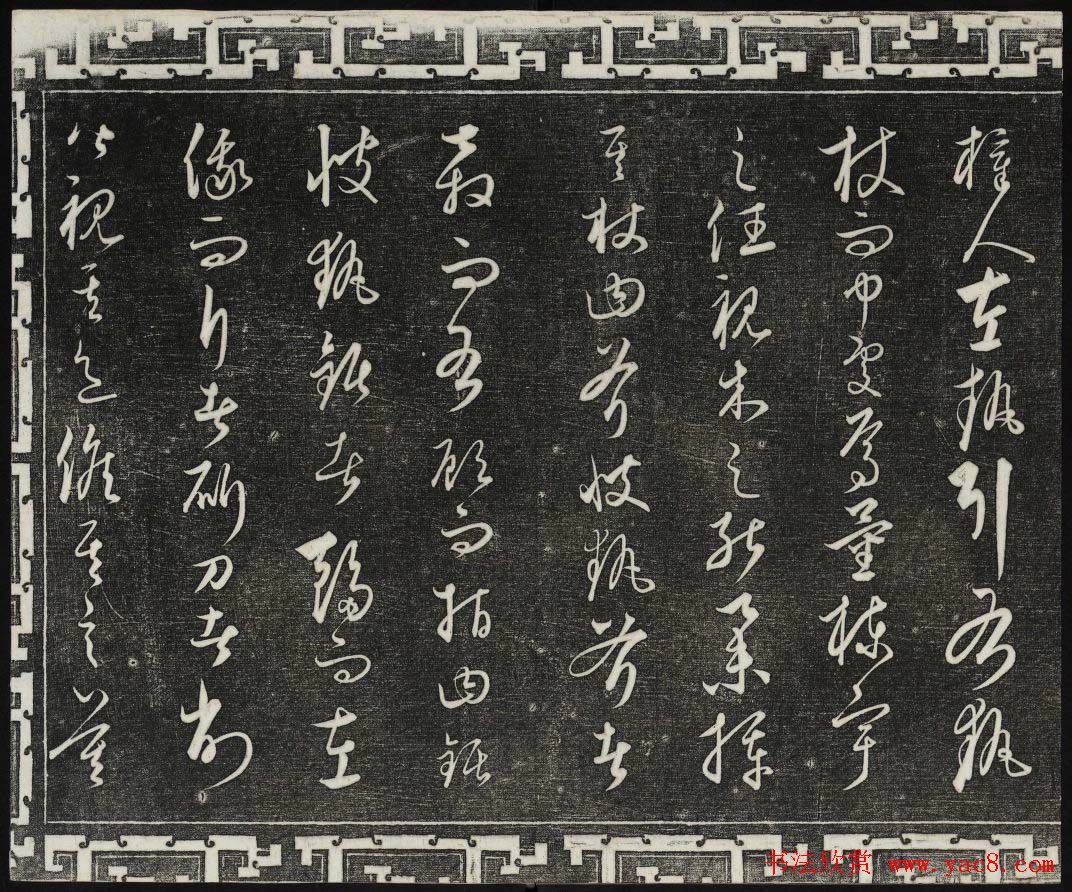 梓人左執引右執
杖而中處焉量棟宇
之任視木之能舉揮
其杖曰斧彼執斧者
奔而右顧而指曰鋸
彼執鋸者趨而左
俄而斤者斫刀者削
皆視其色俟其言莫
书法欣赏 www.yac8.com